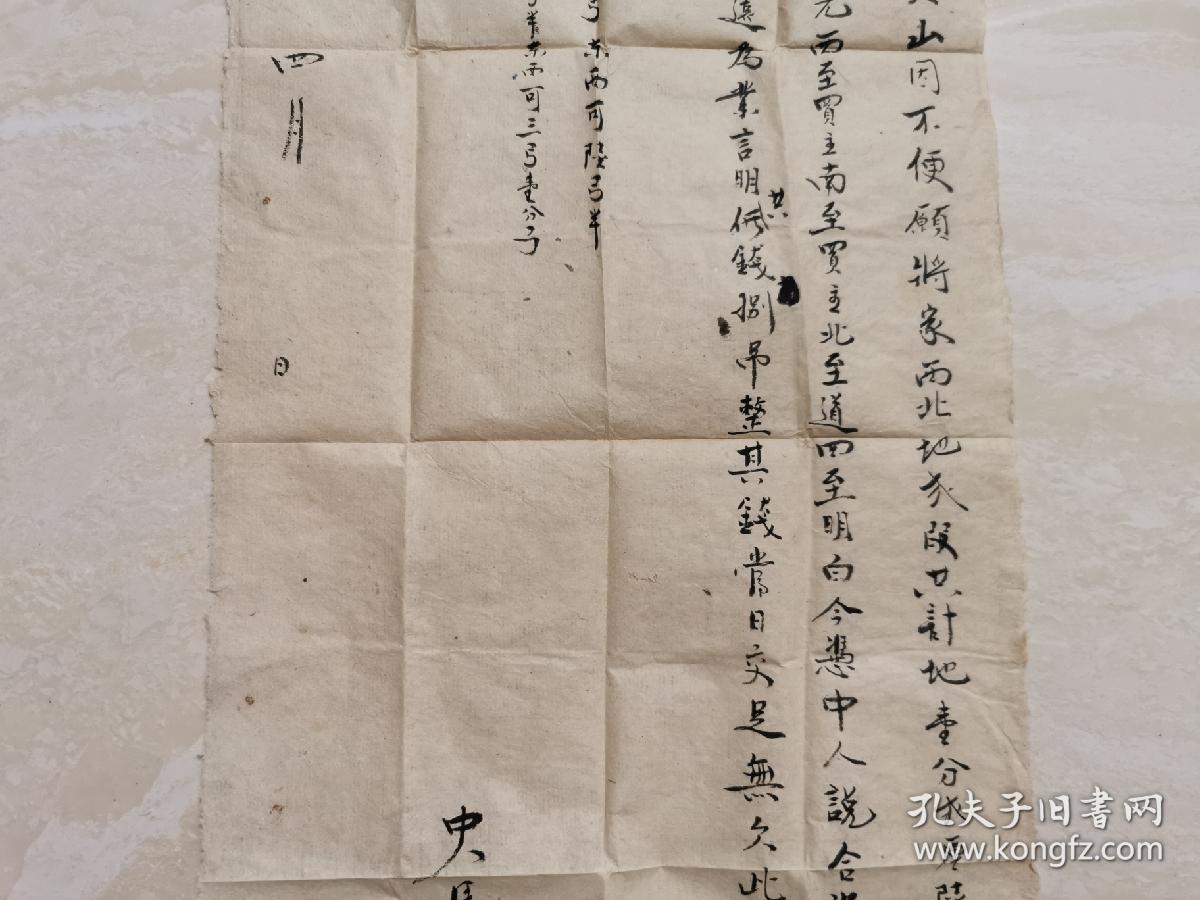 山因不便願將家西北地弍段共計地壹分弍厘陸
西至買主南至買主北至道四至明白今憑中人説合
遠為業言明共價錢捌吊整其錢當日交足無欠此
弓東西可陸弓半
弓半東西可三弓壹分弓
四月 日
中人
孔夫子旧书网
www.kongfz.com